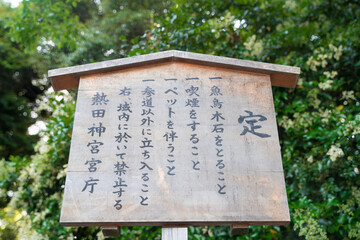 定
一 魚鳥木石をとること
一 喫煙をすること
一 ペットを伴うこと
一 参道以外に立ち入ること
右 域内に於いて禁止する
熱田神宮宮庁